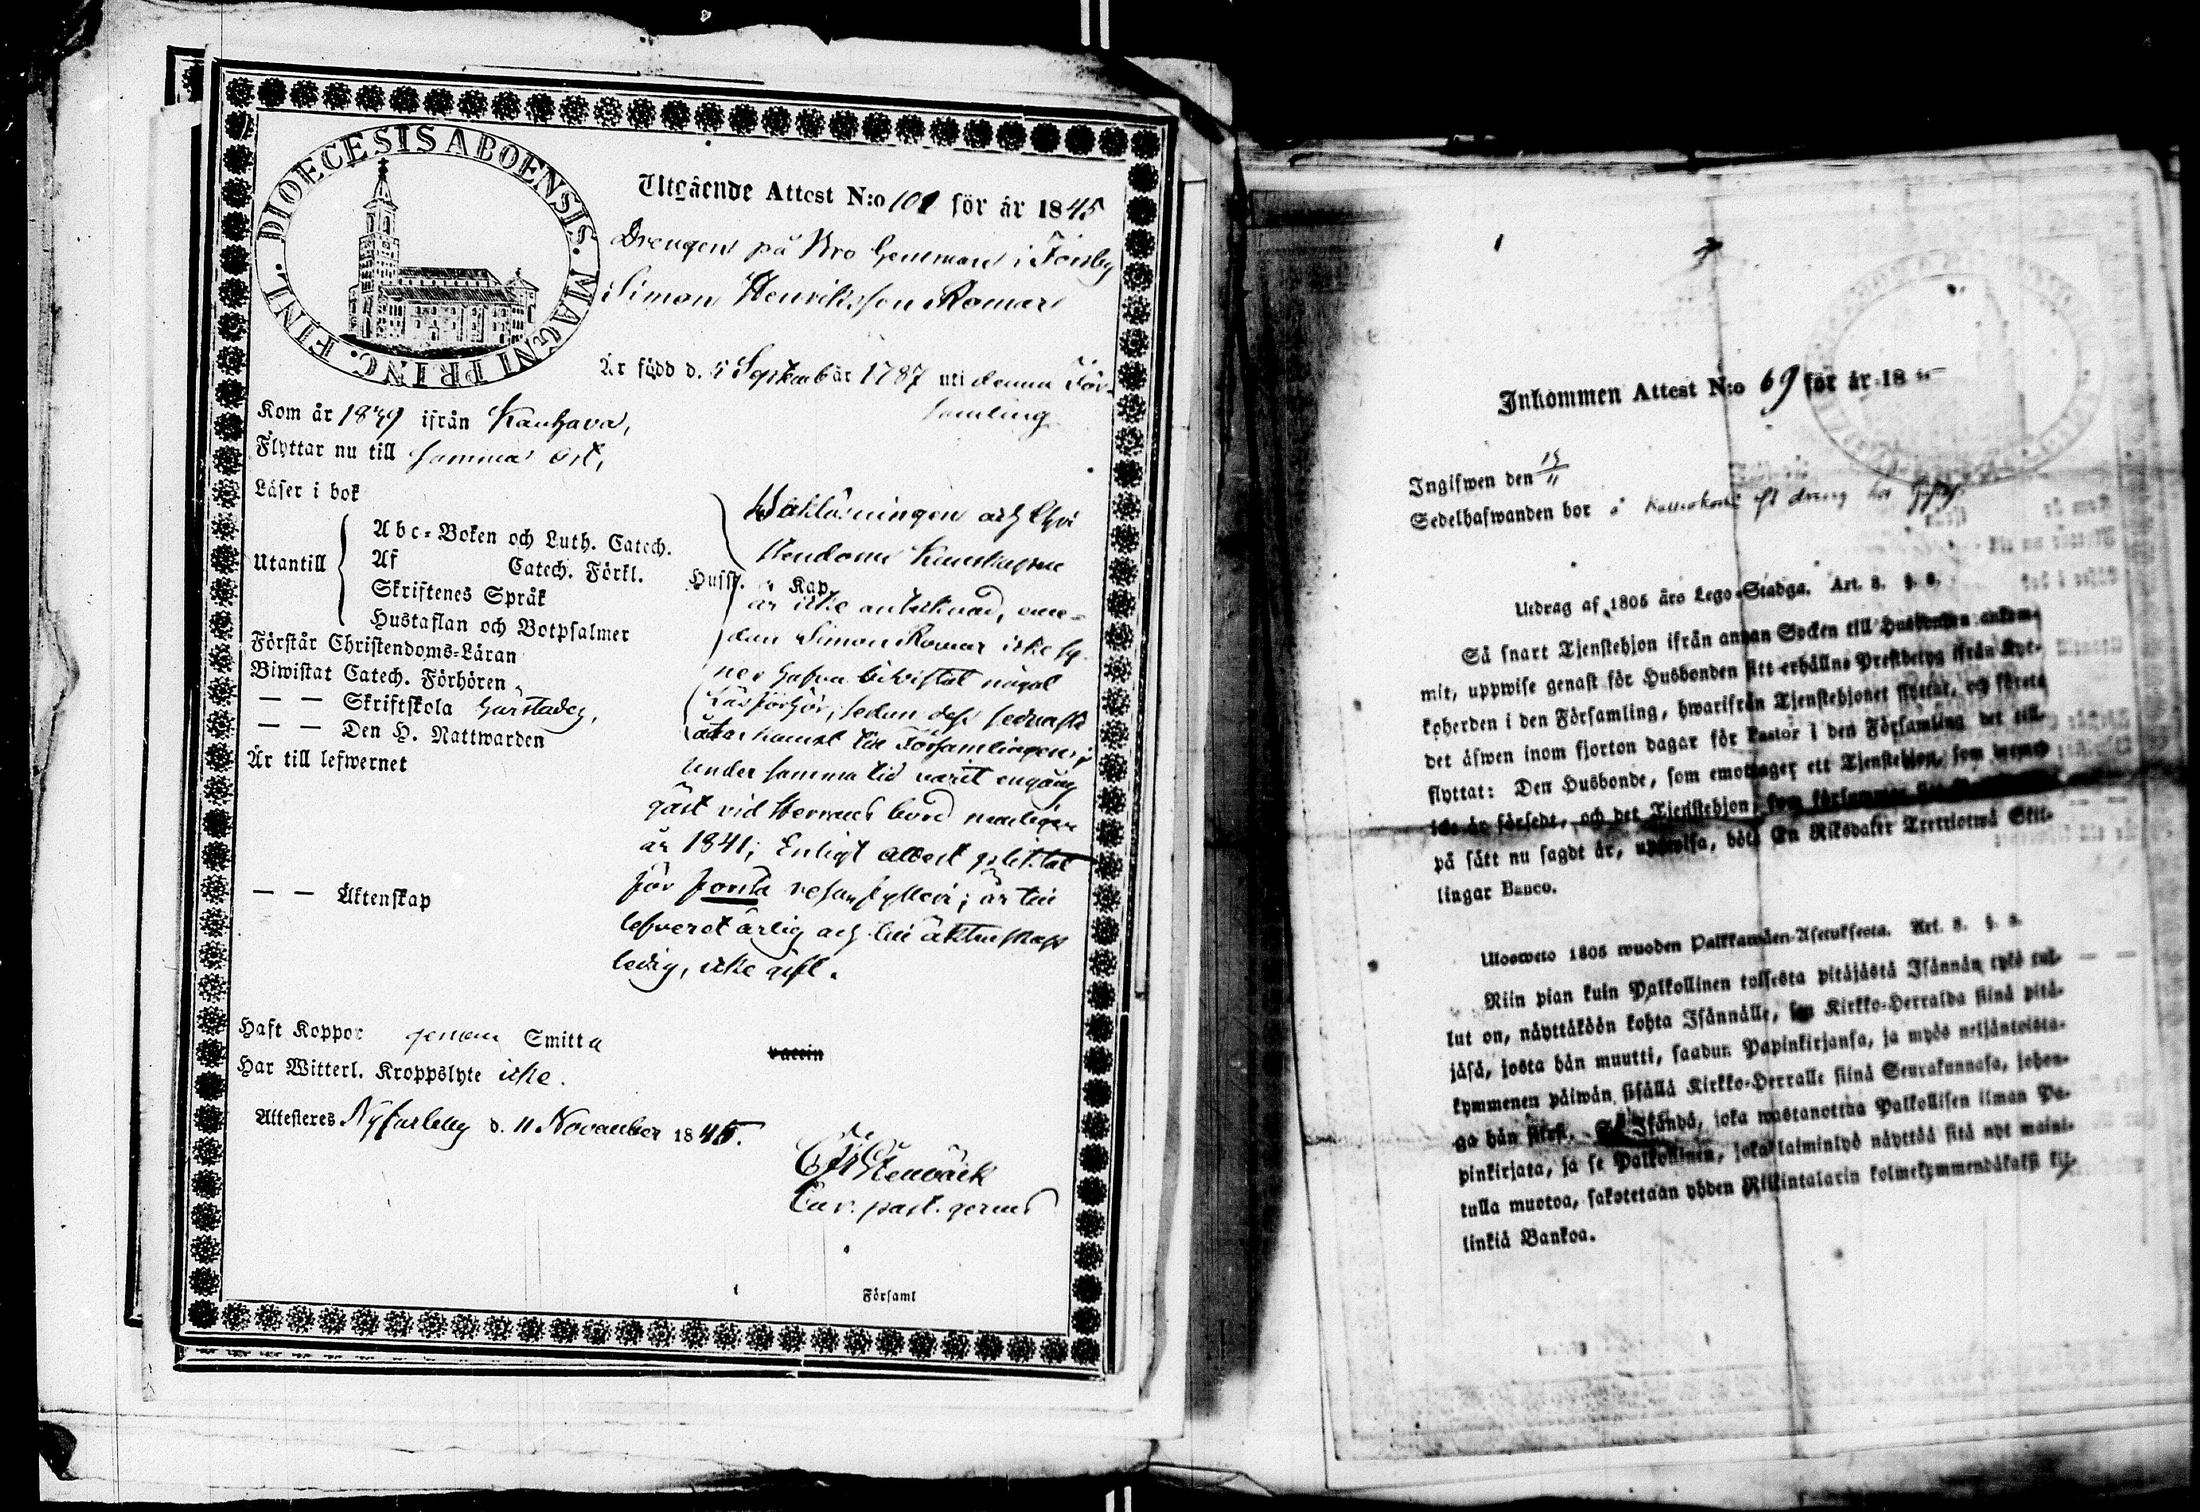 DIOECESIS ABOENSIS. MAGNI PRINC. FINL.
Utgående Attest N:o 101 för år 1845
Drengen på Bro hemman i Forsby
Simon Henriksson Romar
Är född d. 5 Septemb år 1787 uti denna För-
samling
Kom år 1839 ifrån Kauhava,
Flyttar nu till samma ort,
Läser i bok
Utantill
Abc-Boken och Luth. Catech.
Af Catech. Förkl.
Skriftenes Språk
Hustaflan och Botpsalmer
Hufst. o Kap.
Förstår Christendoms-Läran
Biwistat Catech. Förhören
— — Skriftskola
— — Den H. Nattwarden
Är till lefwernet
— — Äktenskap
Bokläsningen och Chri
stendoms kunskapen
är icke antecknad, eme-
dan Simon Romar icke sy-
nes hafva bivistat något
Läsförhör, sedan dess sednaste
återkomst till Församlingen;
under samma tid varit engång
gäst vid Herrens bord nemligen
år 1841; Enligt attest
för första resan fylleri; är till
lefvernet ärlig och till äktenskap
ledig, icke gift.
Haft Koppor genom Smitta
vaccin
Har Witterl. Kroppslyte icke.
Attesteres Nykarleby d. 11 November 1845.
Stenbäck
Cur. past. gerens
Församl
Inkommen Attest N:o 69 för år 18
Ingifwen den 15/11
Sedelhafwanden bor i
Utdrag af 1805 års Lego-Stadga. Art. 8. §. 8.
Så snart Tjenstehjon ifrån annan Socken till Husbonden ankom-
mit, uppwise genast för Husbonden sitt erhållne Prestbetyg ifrån Kyr-
koherden i den Församling, hwarifrån Tjenstehjonet flyttat, och förete
det äfwen inom fjorton dagar för Pastor i den Församling det till-
flyttat: Den Husbonde, som emottager ett Tjenstehjon, som
och det Tjenstehjon, som försummar
på sätt nu sagdt är, uppwisa, böte En Riksdaler Trettiotwå Skil-
lingar Banco.
Ulosweto 1805 wuoden Palkkawäen-Asetuksesta. Art. 8. §. 8.
Niin pian kuin Palkollinen toisesta pitäjästä Isännän tykö tul-
lut on, näyttäköön kohta Isännälle, sen Kirkko-Herralda siinä pitä-
jäsä, josta hän muutti, saadun Papinkirjansa, ja myös neljäntoista-
kymmenen päiwän sisällä Kirkko-Herralle siinä Seurakunnasa, johon-
ga hän Isändä, joka wastanottaa Palkollisen ilman Pa-
pinkirjata, ja se Palkollinen, joka laiminlyö näyttää sitä nyt maini-
tulla muotoa, sakotetaan yhden Riikintalarin kolmekymmendäkaksi kil-
linkiä Bankoa.